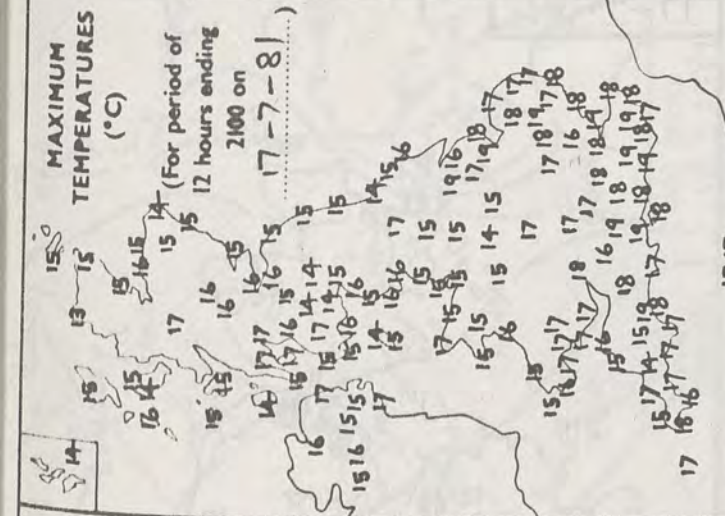 MAXIMUM
TEMPERATURES
(°C)
(For period of
12 hours ending
2100 on
17-7-81)
14
15
13 15
15 15 16 15 14
16 14 15 15
17 16
15 15 16 15
14 17 17 15 16 15
15 17 16 14 14 15
17 15 17 14 15 15
16 15 15 16 16 15 14
15 16 17 14 15 16 16 15 16
15 17 15
17 15 15 15 15 19 16
15 15 15 15 17 19 18
16 14 15 17
15 15 17 18 17
15 17 17 18 19 17
16 17 17 18 17 17 18 18
16 17 16 18
15 16 18 18 19
17 14 15 19 18 19 18 19 19 18
15 17 17 18 17 19 18 19 18 17
18 16 17 18
17